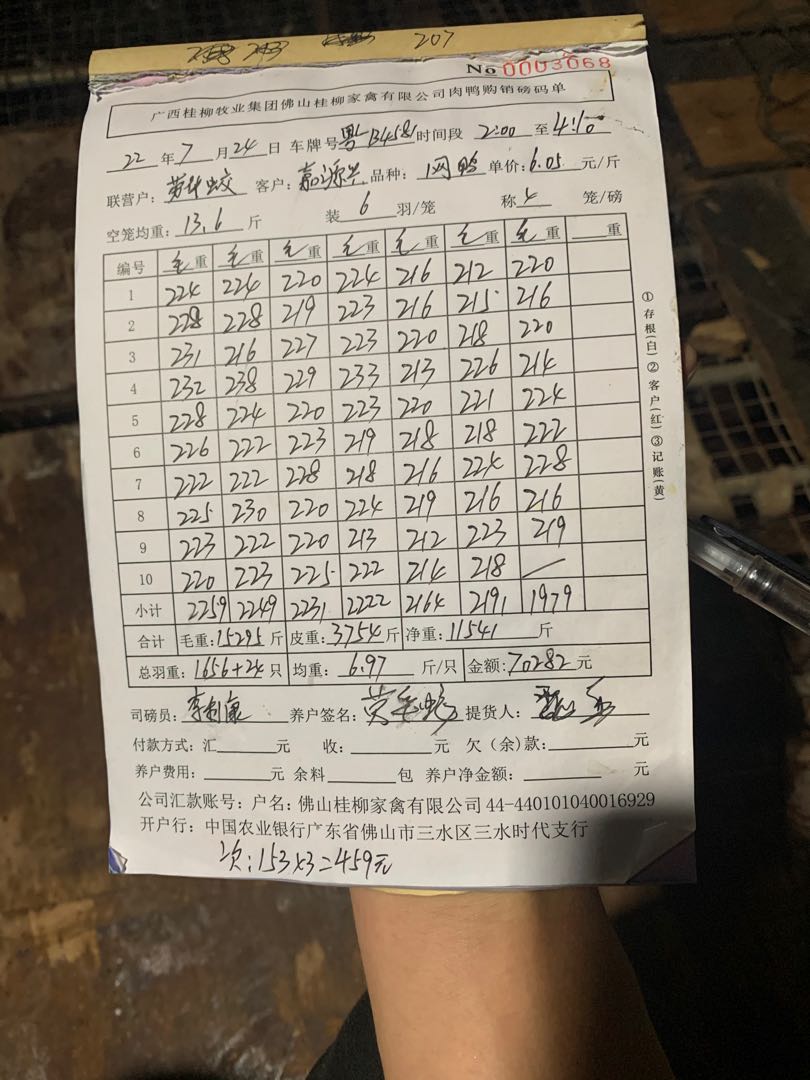 207
No 0003068
广西桂柳牧业集团佛山桂柳家禽有限公司肉鸭购销磅码单
22 年 7 月 24 日 车牌号 粤 时间段 2:00 至 4:10
联营户: 客户: 嘉源兴 品种: 网鸭 单价: 6.05 元/斤
空笼均重: 13.6 斤 装 6 羽/笼 称 4 笼/磅
编号 毛重 毛重 毛重 毛重 毛重 毛重 毛重 重
1 224 224 220 224 216 212 220
2 228 228 219 223 216 215 216
3 231 216 227 223 220 218 220
4 232 238 229 233 213 226 214
5 228 224 220 223 220 221 224
6 226 222 223 219 218 218 222
7 222 222 228 218 216 224 228
8 225 230 220 224 219 216 216
9 223 222 220 213 212 223 219
10 220 223 225 222 214 218 /
小计 2259 2249 2231 2222 2164 2191 1979
合计 毛重: 15295 斤 皮重: 3754 斤 净重: 11541 斤
总羽重: 1656+24 只 均重: 6.97 斤/只 金额: 70282 元
司磅员: 养户签名: 提货人:
付款方式: 汇 元 收: 元 欠(余)款: 元
养户费用: 元 余料 包 养户净金额: 元
公司汇款账号: 户名: 佛山桂柳家禽有限公司 44-440101040016929
开户行: 中国农业银行广东省佛山市三水区三水时代支行
次: 153×3=459元
①存根(白)②客户(红)③记账(黄)